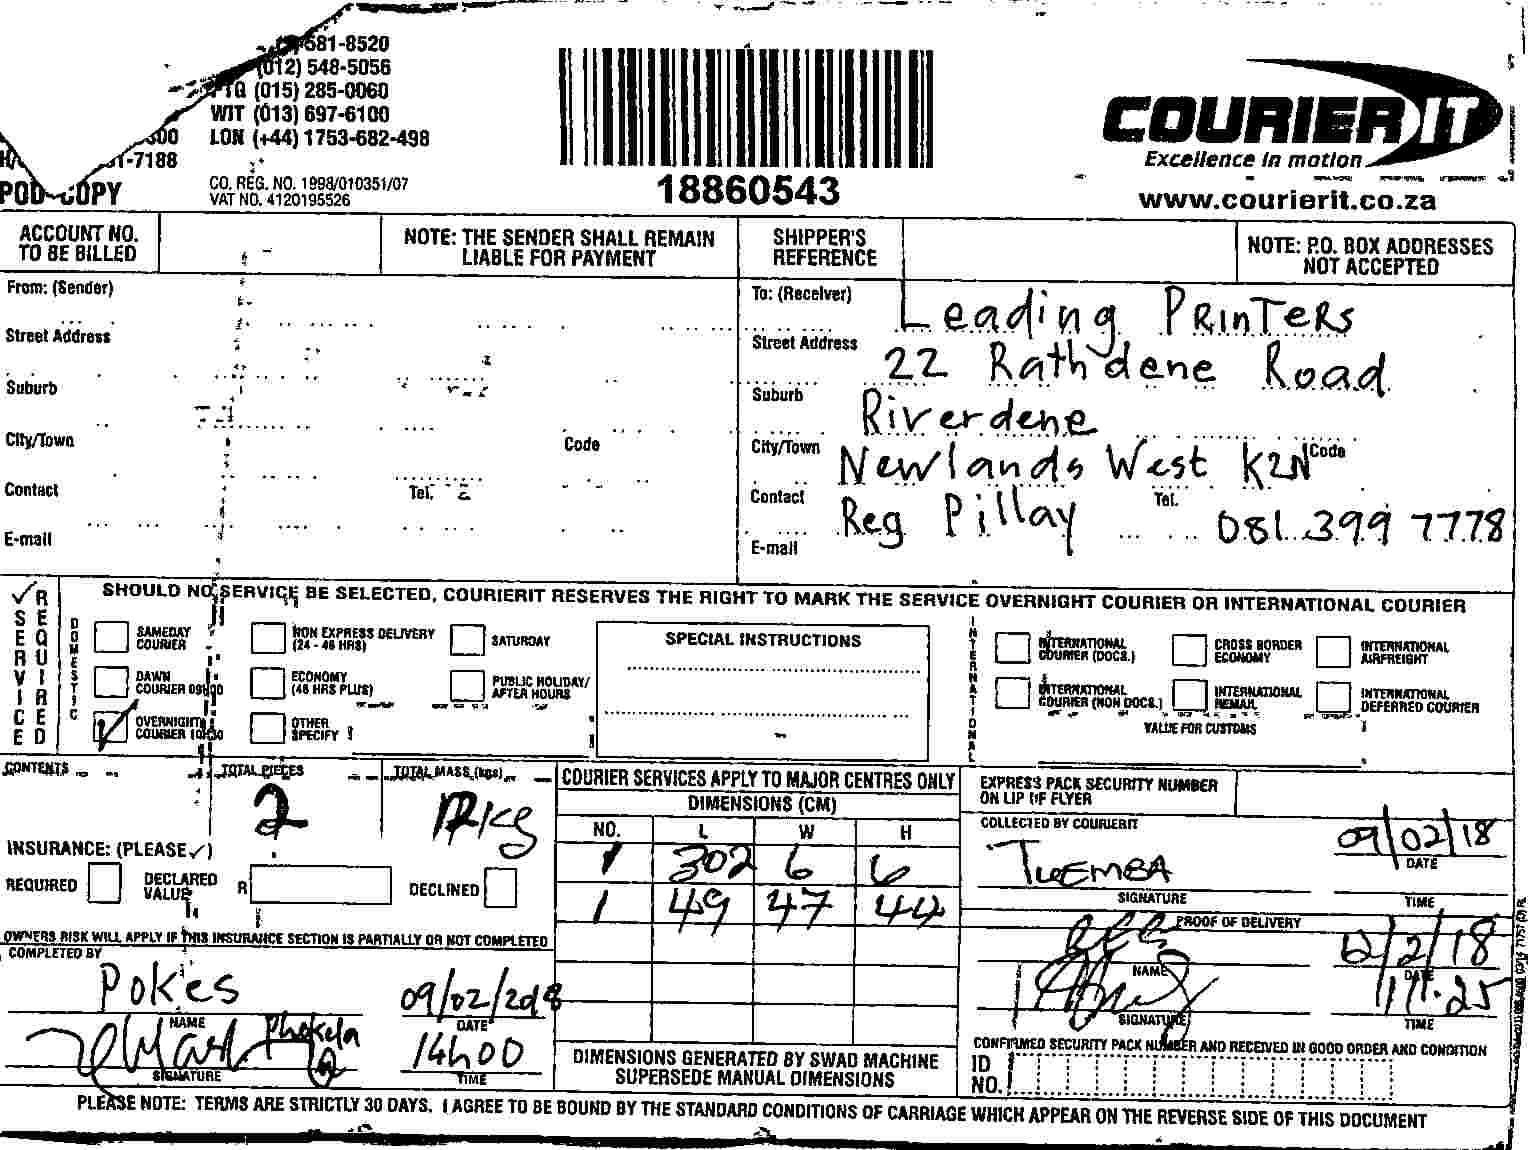 581-8520
(012) 548-5056
(015) 285-0060
WIT (013) 697-6100
LON (+44) 1753-682-498
-7188
POD COPY
CO. REG. NO. 1998/010351/07
VAT NO. 4120195526
18860543
COURIER IT
Excellence in motion
www.courierit.co.za
ACCOUNT NO.
TO BE BILLED
NOTE: THE SENDER SHALL REMAIN
LIABLE FOR PAYMENT
SHIPPER'S
REFERENCE
NOTE: P.O. BOX ADDRESSES
NOT ACCEPTED
From: (Sender)
Street Address
Suburb
City/Town Code
Contact Tel.
E-mail
To: (Receiver) Leading Printers
Street Address 22 Rathdene Road
Suburb Riverdene
City/Town Newlands West KZN Code
Contact Reg Pillay Tel. 081 399 7778
E-mail
SERVICE REQUIRED
SHOULD NO SERVICE BE SELECTED, COURIERIT RESERVES THE RIGHT TO MARK THE SERVICE OVERNIGHT COURIER OR INTERNATIONAL COURIER
DOMESTIC
SAMEDAY
COURIER
DAWN
COURIER 09H00
OVERNIGHT
COURIER 10H30
NON EXPRESS DELIVERY
(24 - 48 HRS)
ECONOMY
(48 HRS PLUS)
OTHER
SPECIFY
SATURDAY
PUBLIC HOLIDAY/
AFTER HOURS
SPECIAL INSTRUCTIONS
INTERNATIONAL
INTERNATIONAL
COURIER (DOCS.)
INTERNATIONAL
COURIER (NON DOCS.)
CROSS BORDER
ECONOMY
INTERNATIONAL
REMAIL
INTERNATIONAL
AIRFREIGHT
INTERNATIONAL
DEFERRED COURIER
VALUE FOR CUSTOMS
CONTENTS
TOTAL PIECES
2
TOTAL MASS (kgs)
12kg
INSURANCE: (PLEASE ✓)
REQUIRED
DECLARED
VALUE
R
DECLINED
OWNERS RISK WILL APPLY IF THIS INSURANCE SECTION IS PARTIALLY OR NOT COMPLETED
COMPLETED BY
Pokes
NAME
09/02/2018
DATE
Phokela
SIGNATURE
14h00
TIME
COURIER SERVICES APPLY TO MAJOR CENTRES ONLY
DIMENSIONS (CM)
NO. L W H
1 302 6 6
1 49 47 44
DIMENSIONS GENERATED BY SWAD MACHINE
SUPERSEDE MANUAL DIMENSIONS
EXPRESS PACK SECURITY NUMBER
ON LIP OF FLYER
COLLECTED BY COURIERIT
SIGNATURE
09/02/18
DATE
TIME
PROOF OF DELIVERY
NAME
12/2/18
DATE
SIGNATURE
11.25
TIME
CONFIRMED SECURITY PACK NUMBER AND RECEIVED IN GOOD ORDER AND CONDITION
ID
NO.
PLEASE NOTE: TERMS ARE STRICTLY 30 DAYS. I AGREE TO BE BOUND BY THE STANDARD CONDITIONS OF CARRIAGE WHICH APPEAR ON THE REVERSE SIDE OF THIS DOCUMENT